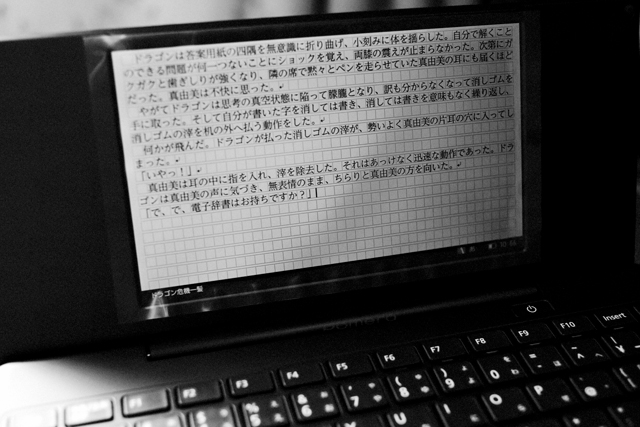 ドラゴンは答案用紙の四隅を無意識に折り曲げ、小刻みに体を揺らした。自分で解くこと
のできる問題が何一つないことにショックを覚え、両膝の震えが止まらなかった。次第にガ
クガクと歯ぎしりが強くなり、隣の席で黙々とペンを走らせていた真由美の耳にも届くほど
だった。真由美は不快に思った。
やがてドラゴンは思考の真空状態に陥って朦朧となり、訳も分からなくなって消しゴムを
手に取った。そして自分が書いた字を消しては書き、消しては書きを意味もなく繰り返し、
消しゴムの滓を机の外へ払う動作をした。
何かが飛んだ。ドラゴンが払った消しゴムの滓が、勢いよく真由美の片耳の穴に入ってし
まった。
「いやっ！」
真由美は耳の中に指を入れ、滓を除去した。それはあっけなく迅速な動作であった。ドラ
ゴンは真由美の声に気づき、無表情のまま、ちらりと真由美の方を向いた。
「で、で、電子辞書はお持ちですか？」
ドラゴン危機一髪
F1 F2 F3 F4 F5 F6 F7 F8 F9 F10 Insert
5 6 7 8 9 0
U I O P